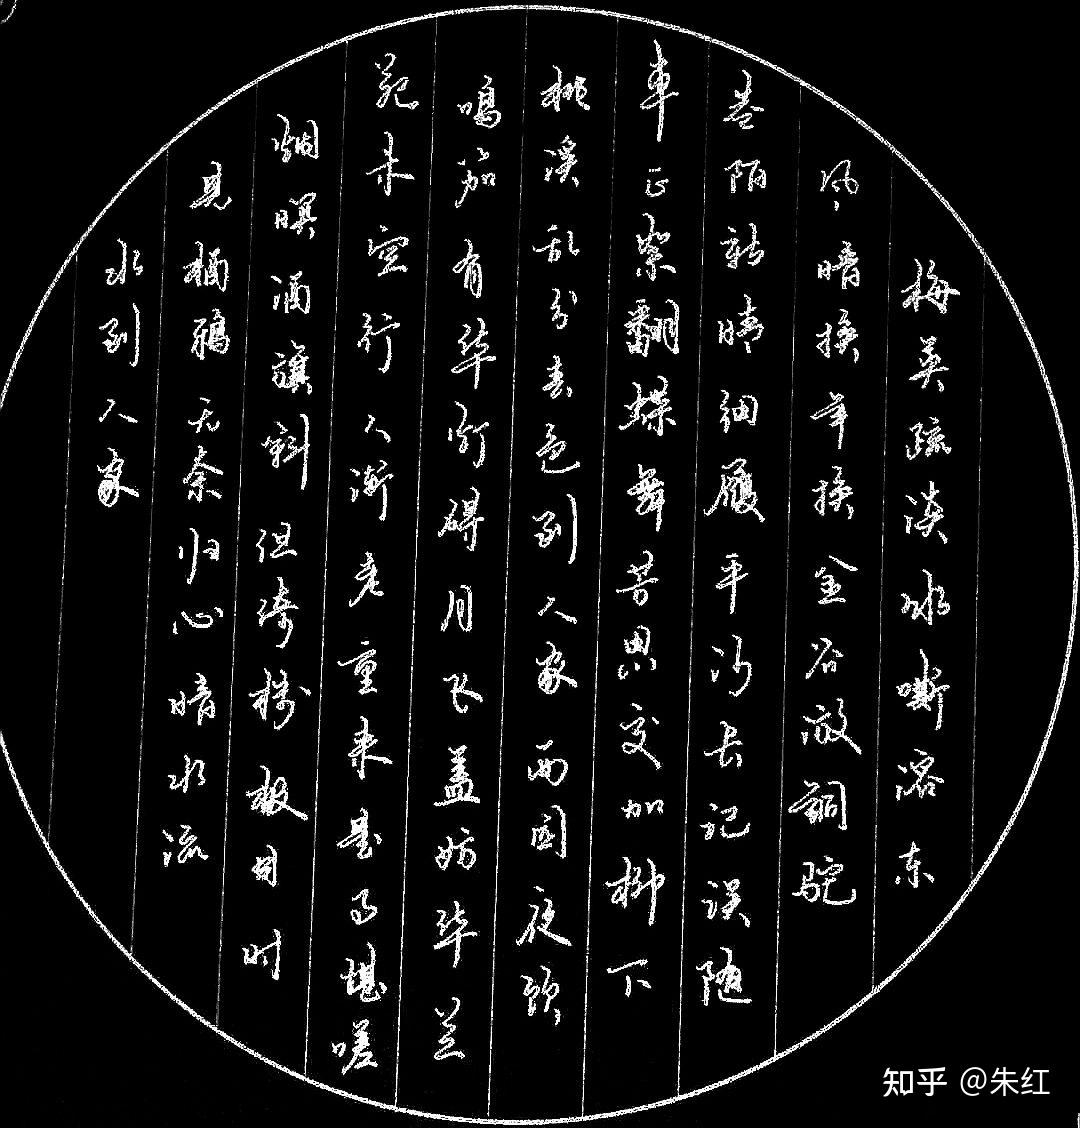 梅英疏淡冰嘶溶东
风暗换年换金谷铜驼
巷陌新晴细履平沙长记误随
車正絮翻蝶舞芳思交加柳下
桃溪乱分春色到人家西园夜
鸣笳有华灯碍月飞盖妨华兰
苑未空行人渐老重来是事堪嗟
烟暝酒旗斜但倚楼极目时
见栖鸦无奈归心暗水流
水到人家
知乎 @朱红